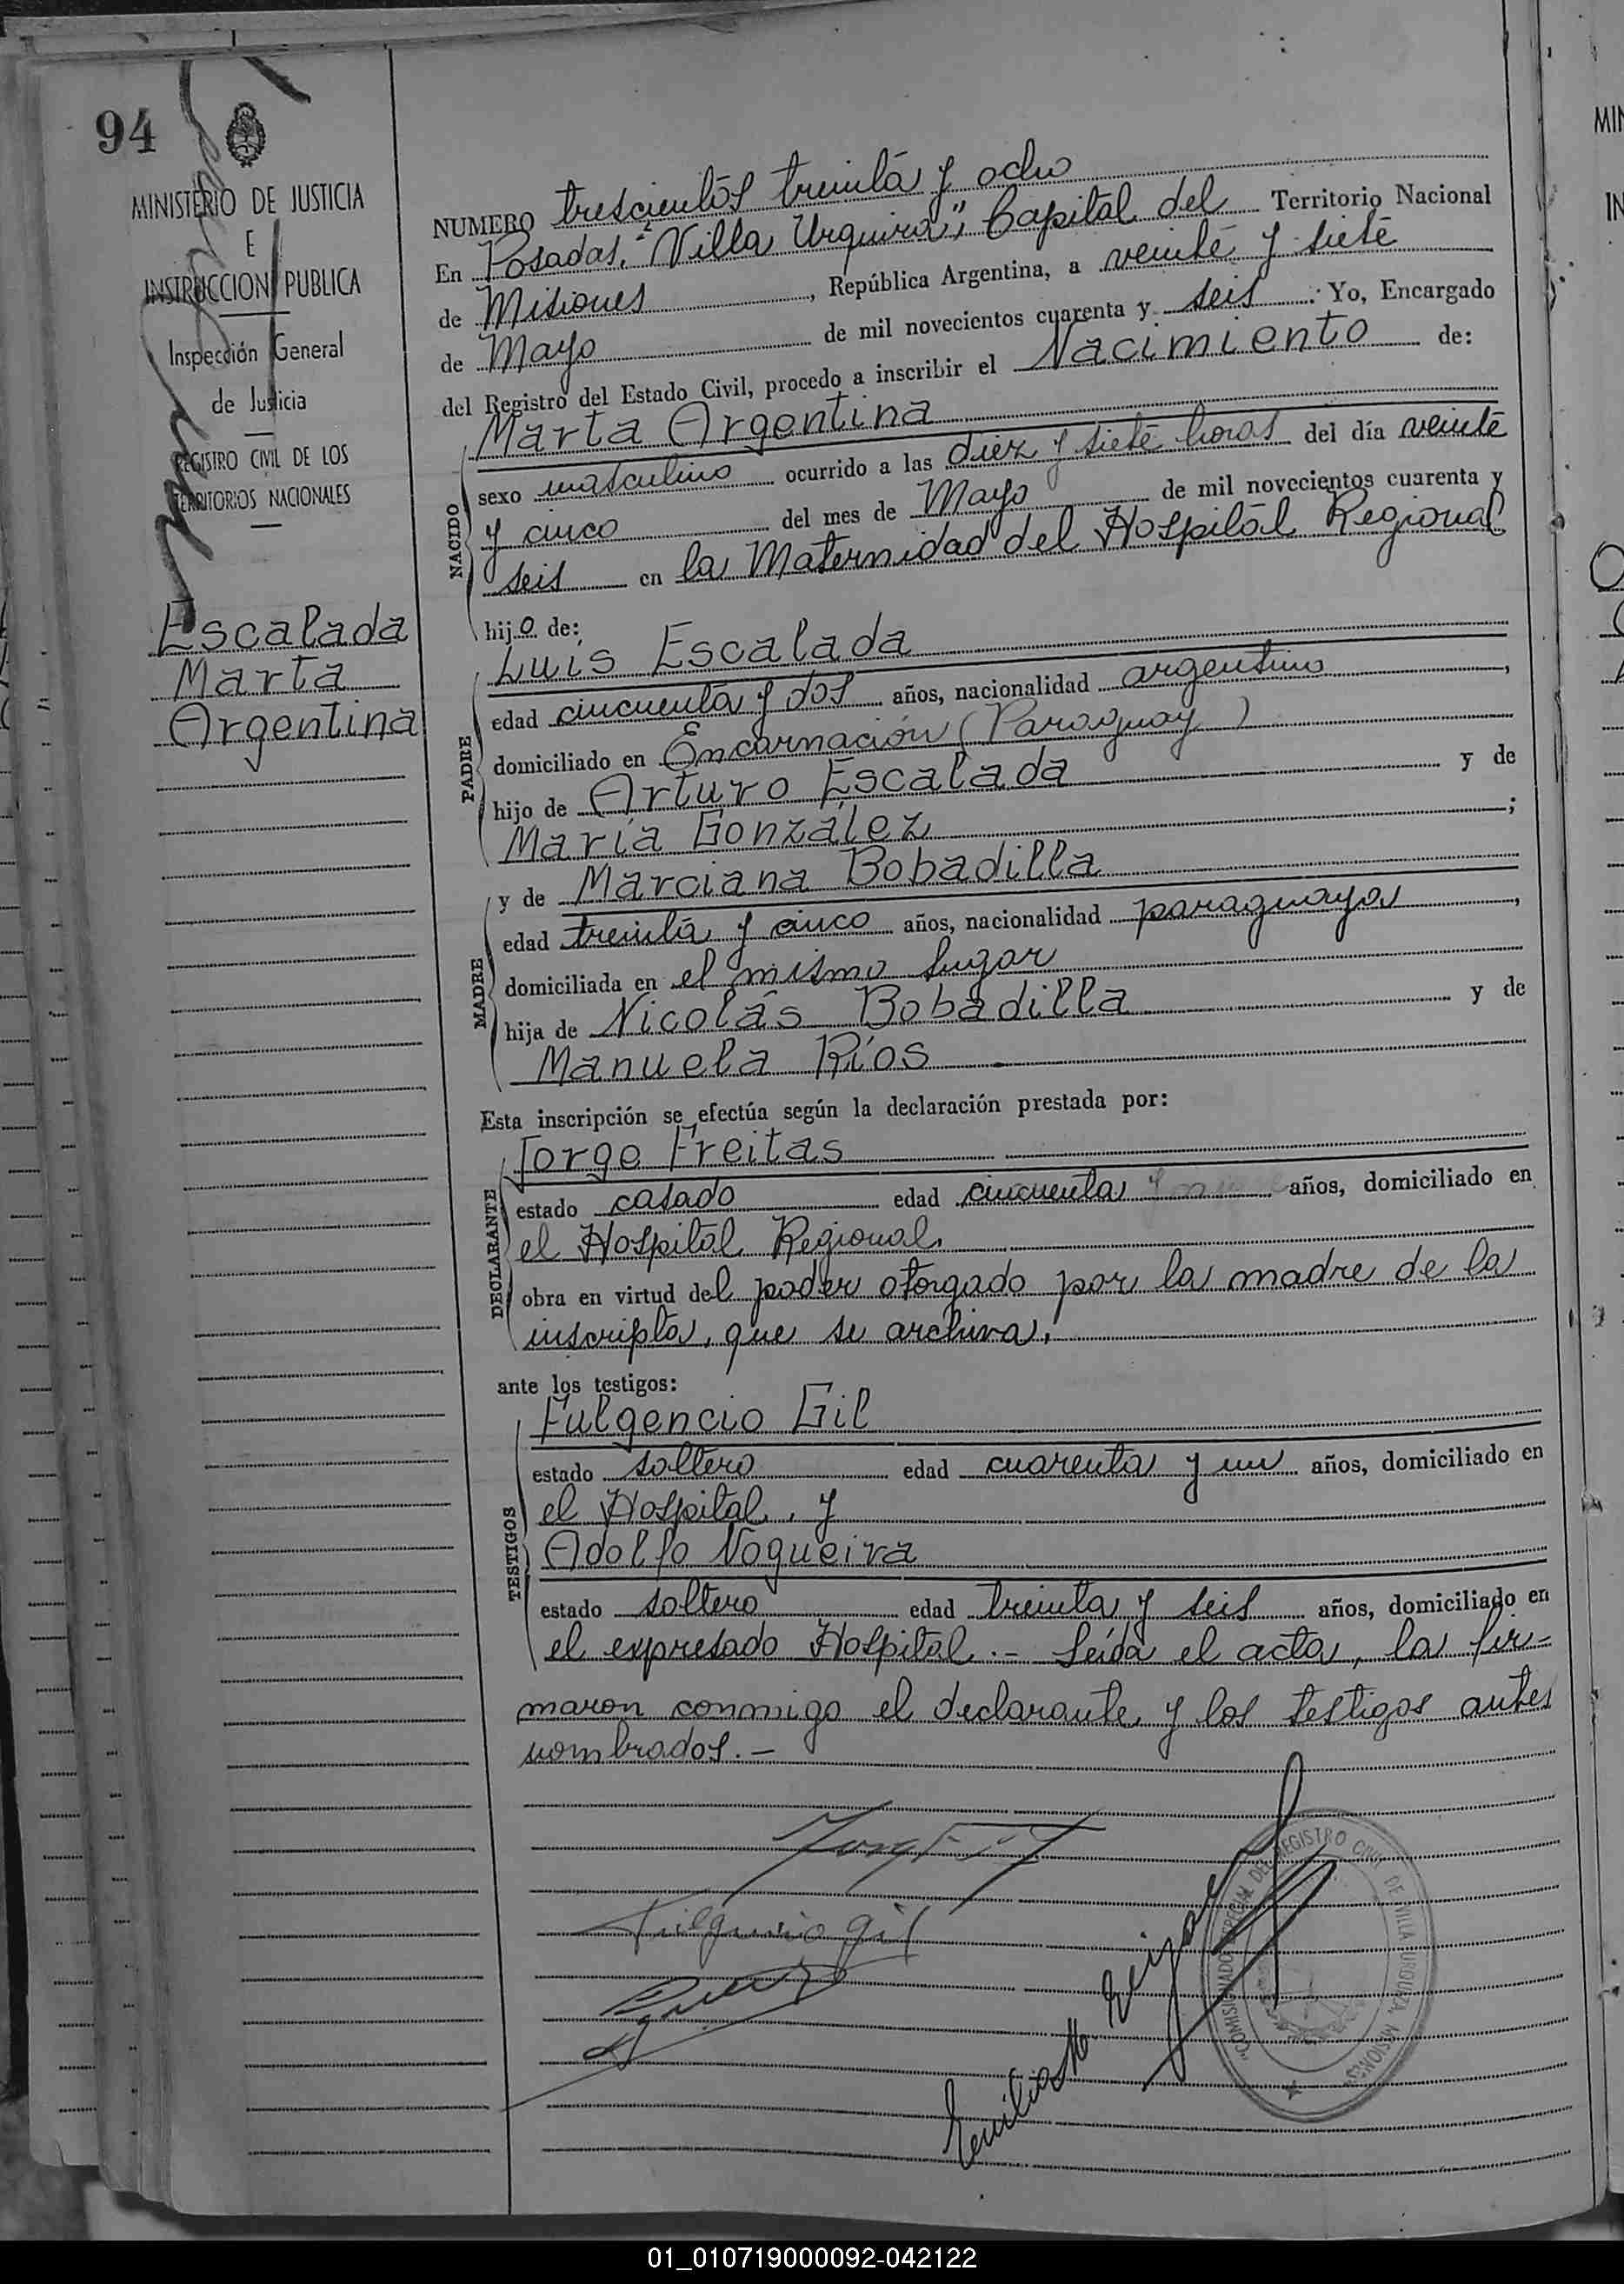 94
MINISTERIO DE JUSTICIA
E
INSTRUCCION PUBLICA
Inspección General
de Justicia
REGISTRO CIVIL DE LOS
TERRITORIOS NACIONALES
Escalada
Marta
Argentina
NUMERO trescientos treinta y ocho
En Posadas, "Villa Urquiza", Capital del Territorio Nacional
de Misiones, República Argentina, a veinte y siete
de Mayo de mil novecientos cuarenta y seis. Yo, Encargado
del Registro del Estado Civil, procedo a inscribir el Nacimiento de:
NACIDO
Marta Argentina
sexo masculino ocurrido a las diez y siete horas del día veinte
y cinco del mes de Mayo de mil novecientos cuarenta y
seis en la Maternidad del Hospital Regional
hijo de:
PADRE
Luis Escalada
edad cincuenta y dos años, nacionalidad argentino,
domiciliado en Encarnación (Paraguay)
hijo de Arturo Escalada y de
María González;
MADRE
y de Marciana Bobadilla
edad treinta y cinco años, nacionalidad paraguaya,
domiciliada en el mismo lugar
hija de Nicolás Bobadilla y de
Manuela Ríos
Esta inscripción se efectúa según la declaración prestada por:
DECLARANTE
Jorge Freitas
estado casado edad cincuenta años, domiciliado en
el Hospital Regional
obra en virtud del poder otorgado por la madre de la
inscripta, que se archiva.
ante los testigos:
TESTIGOS
Fulgencio Gil
estado soltero edad cuarenta y un años, domiciliado en
el Hospital, y
Adolfo Nogueira
estado soltero edad treinta y seis años, domiciliado en
el expresado Hospital.- Leída el acta, la fir=
maron conmigo el declarante y los testigos antes
nombrados.-
Fulgencio gil
"COMISIONADO ESPECIAL DEL REGISTRO CIVIL DE VILLA URQUIZA, MISIONES"
MIN
IN
01_010719000092-042122